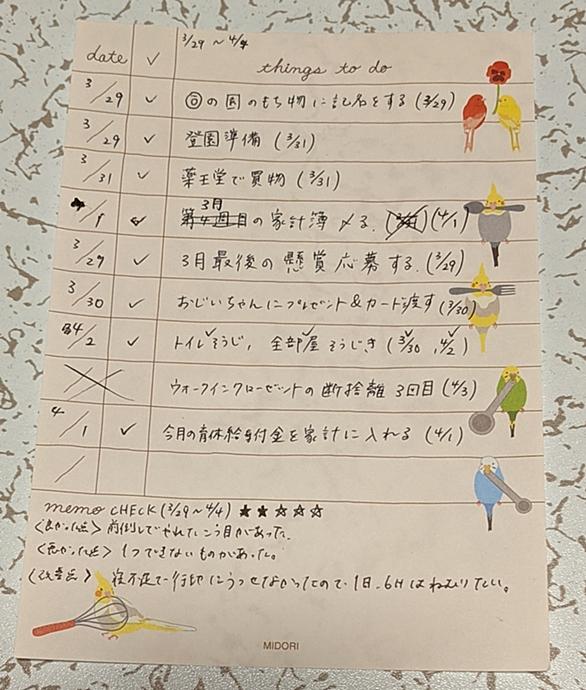 3/29 ~ 4/4
date ✓ things to do
3/29 ✓ ㊂の園のもち物に記名をする (3/29)
3/29 ✓ 登園準備 (3/31)
3/31 ✓ 薬王堂で買物 (3/31)
3月
4/1 ✓ 第4週目の家計簿〆る. (4/1)
3/29 ✓ 3月最後の懸賞応募する. (3/29)
3/30 ✓ おじいちゃんにプレゼント&カード渡す (3/30)
4/2 ✓ トイレそうじ, 全部屋そうじき (3/30, 4/2)
/ ウォークインクローゼットの断捨離 3回目 (4/3)
4/1 ✓ 今月の育休給付金を家計に入れる (4/1)
/
memo CHECK (3/29~4/4) ★★☆☆☆
<良かった点> 前倒しでやれたこう目があった.
<悪かった点> 1つできないものがあった。
<改善点> 寝不足で行動にうつせなかったので 1日6Hはねむりたい。
MIDORI